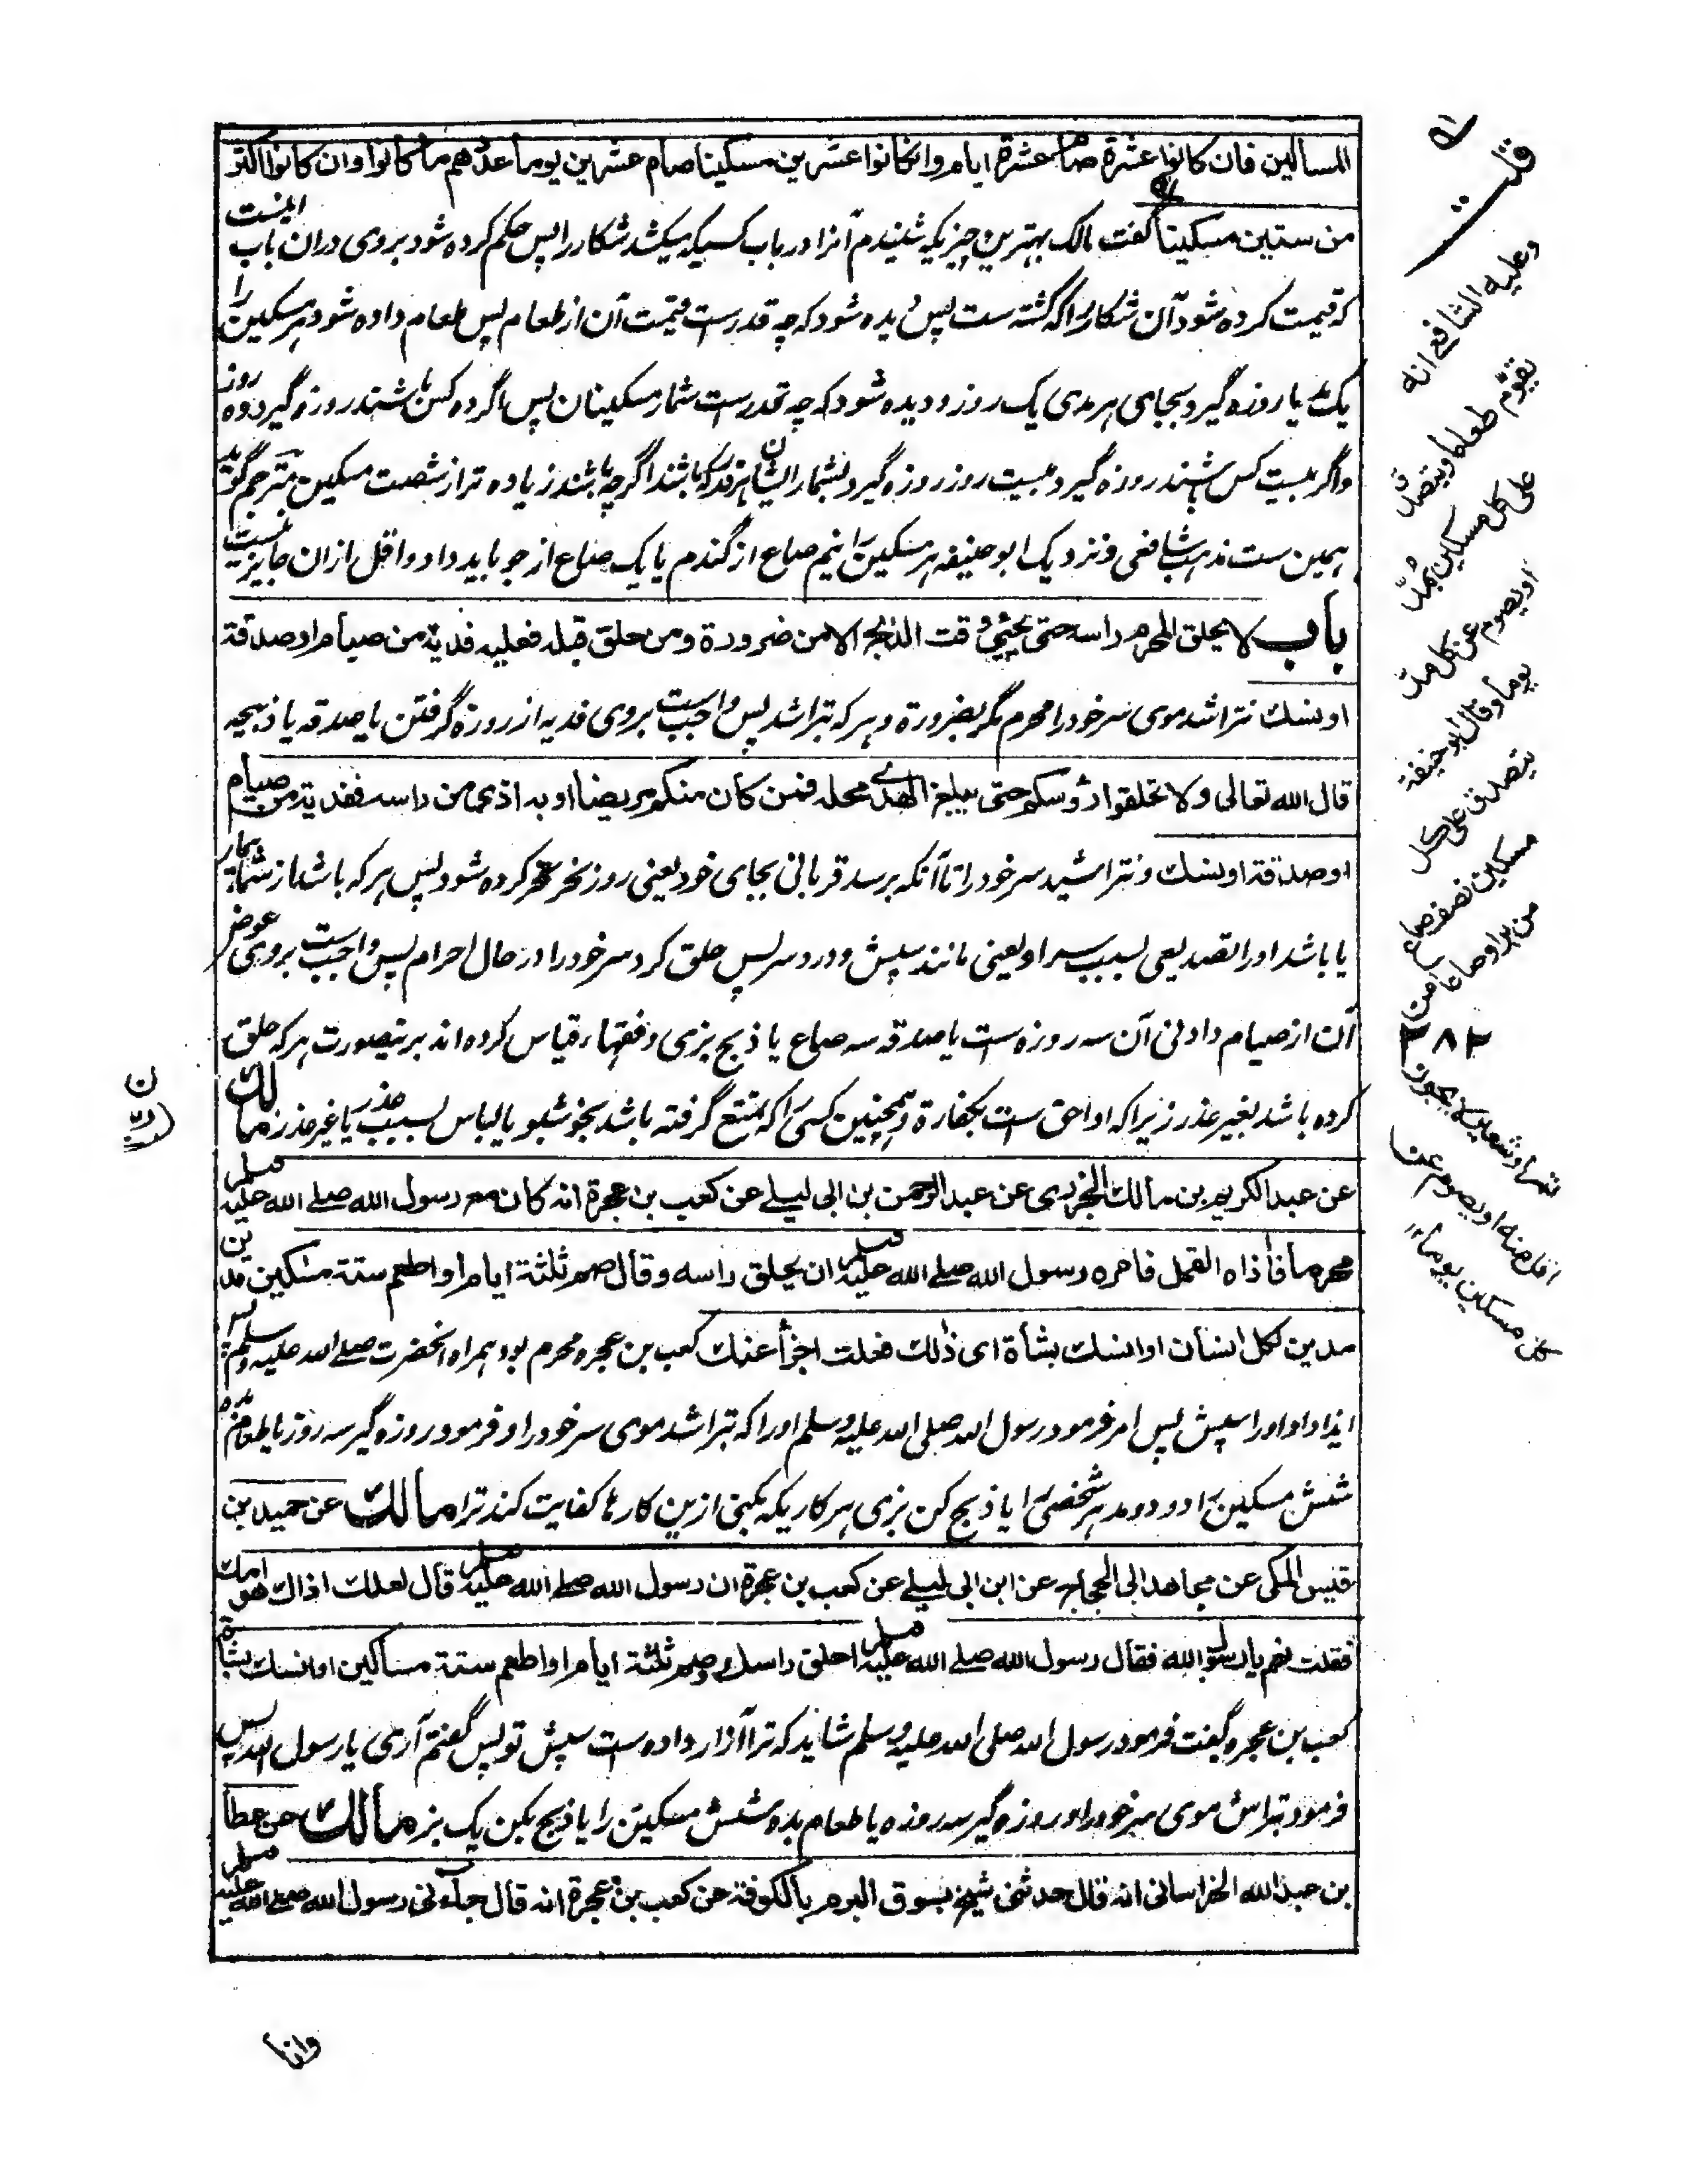 المساكين فان كانوا عشرة صام عشرة ايام وانكانوا عشرين مسكينا صام عشرين يوما عددهم ما كانوا وان كانوا اكثر
من ستين مسكينا گفت مالك بهترين چيزيكه شنيدم آنرا در باب كسيكه ميكشد شكار را پس حكم كرده شود بروى دران باب اينست
كه قيمت كرده شود آن شكار را كه كشته ست پس ديده شود كه چه قدرست قيمت آن از طعام پس طعام داده شود هر مسكين را
يك مد يا روزه گيرد بجاى هر مدى يك روز و ديده شود كه چه قدرست شمار مسكينان پس اگر ده كس باشند روزه گيرد ده روز
واگر بيست كس باشند روزه گيرد بيست روز روزه گيرد بشمار ايشان هر قدر كه باشند اگرچه باشند زياده تر از شصت مسكين مترجم گويد
همين ست مذهب شافعى و نزديك ابو حنيفه هر مسكين را نيم صاع از گندم يا يك صاع از جو بايد داد و اقل ازان جايز نيست
باب لا يحلق المحرم راسه حتى يجيئ وقت الذبح الا من ضرورة ومن حلق قبله فعليه فدية من صيام او صدقة
او نسك نتراشد موى سر خود را محرم مگر بضرورة و هر كه بتراشد پس واجب ست بروى فديه از روزه گرفتن يا صدقه يا ذبيحه
قال الله تعالى ولا تحلقوا رؤسكم حتى يبلغ الهدى محله فمن كان منكم مريضا او به اذى من راسه ففدية من صيام
او صدقة او نسك و نتراشيد سر خود را تا آنكه برسد قربانى بجاى خود يعنى روز نحر نحر كرده شود پس هر كه باشد از شما بيمار
يا باشد او را تصديعى بسبب سر او يعنى مانند سپش و درد سر پس حلق كرد سر خود را در حال احرام پس واجب ست بروى عوض
آن از صيام و ادنى آن سه روزه ست يا صدقه سه صاع يا ذبح بزى و فقهاء قياس كرده اند برينصورت هر كه حلق
كرده باشد بغير عذر زيرا كه او احق ست بكفارة و همچنين كسى را كه تمتع گرفته باشد بخوشبو يا لباس بسبب عذر يا غير عذر مالك
عن عبد الكريم بن مالك الجزرى عن عبد الرحمن بن ابى ليلے عن كعب بن عجرة انه كان مع رسول الله صلے الله عليه وسلم
محرما فاذاه القمل فامره رسول الله صلے الله عليه وسلم ان يحلق راسه وقال صم ثلثة ايام او اطعم ستة مسكين مدين
مدين لكل انسان او انسك بشاة اى ذلك فعلت اجزأ عنك كعب بن عجره محرم بود همراه آنحضرت صلے الله عليه وسلم پس
ايذا داد او را سپش پس امر فرمود رسول الله صلى الله عليه وسلم او را كه بتراشد موى سر خود را و فرمود روزه گير سه روز يا طعام بده
شش مسكين را دو دو مد هر شخصى را يا ذبح كن بزى هر كاريكه بكنى ازين كارها كفايت كند ترا مالك عن حميد بن
قيس المكى عن مجاهد ابى الحجاج عن ابن ابى ليلے عن كعب بن عجرة ان رسول الله صلے الله عليه وسلم قال لعلك اذاك هوامك
فقلت نعم يا رسول الله فقال رسول الله صلے الله عليه وسلم احلق راسك وصم ثلثة ايام او اطعم ستة مساكين او انسك بشاة
كعب بن عجره گفت فرمود رسول الله صلى الله عليه وسلم شايد كه ترا آزار داده ست سپش تو پس گفتم آرى يا رسول الله پس
فرمود بتراش موى سر خود را و روزه گير سه روزه يا طعام بده شش مسكين را يا ذبح بكن يك بز مالك عن عطا
بن عبد الله الخراسانى انه قال حدثنى شيخ بسوق البرم بالكوفة عن كعب بن عجرة انه قال جاءنى رسول الله صلے الله عليه وسلم
قلت
وعليه الشافعے انه
يقوم طعاما ويتصدق
على كل مسكين بمد
او يصوم عن كل مد
يوما وقال ابو حنيفة
يتصدق على كل
مسكين نصف صاع
من بر او صاعا من
٣٨٢
تمر او شعير لا يجوز
اقل منه او يصوم عن
كل مسكين يوما
وانا